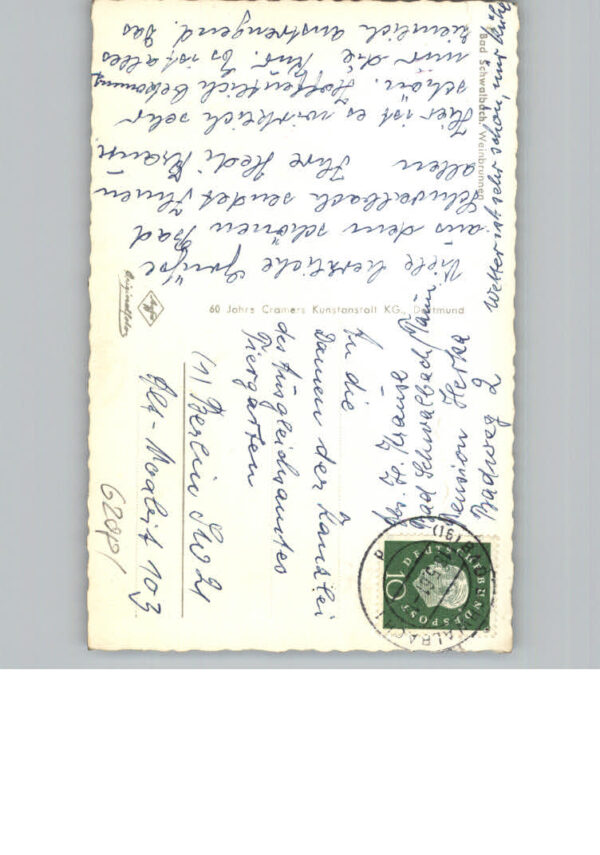 Bad Schwalbach, Weinbrunnen
Viele herzliche Grüße
aus dem schönen Bad
Schwalbach sendet Ihnen
allen Ihre Hedi Krause.
Hier ist es wirklich sehr
schön. Hoffentlich bekommt
mir die Kur. Es ist alles
ziemlich anstrengend. Das
Wetter ist sehr schön, nur kühl
60 Jahre Cramers Kunstanstalt KG., Dortmund
Agfa
Originalfoto
Abs. H. Krause
Bad Schwalbach/Taun.
Pension Herka
Badweg 2
An die
Damen der Kanzlei
des Ausgleichsamtes
Tiergarten
(1) Berlin SW 21
Alt-Moabit 103
DEUTSCHE BUNDESPOST
10
(16) BAD